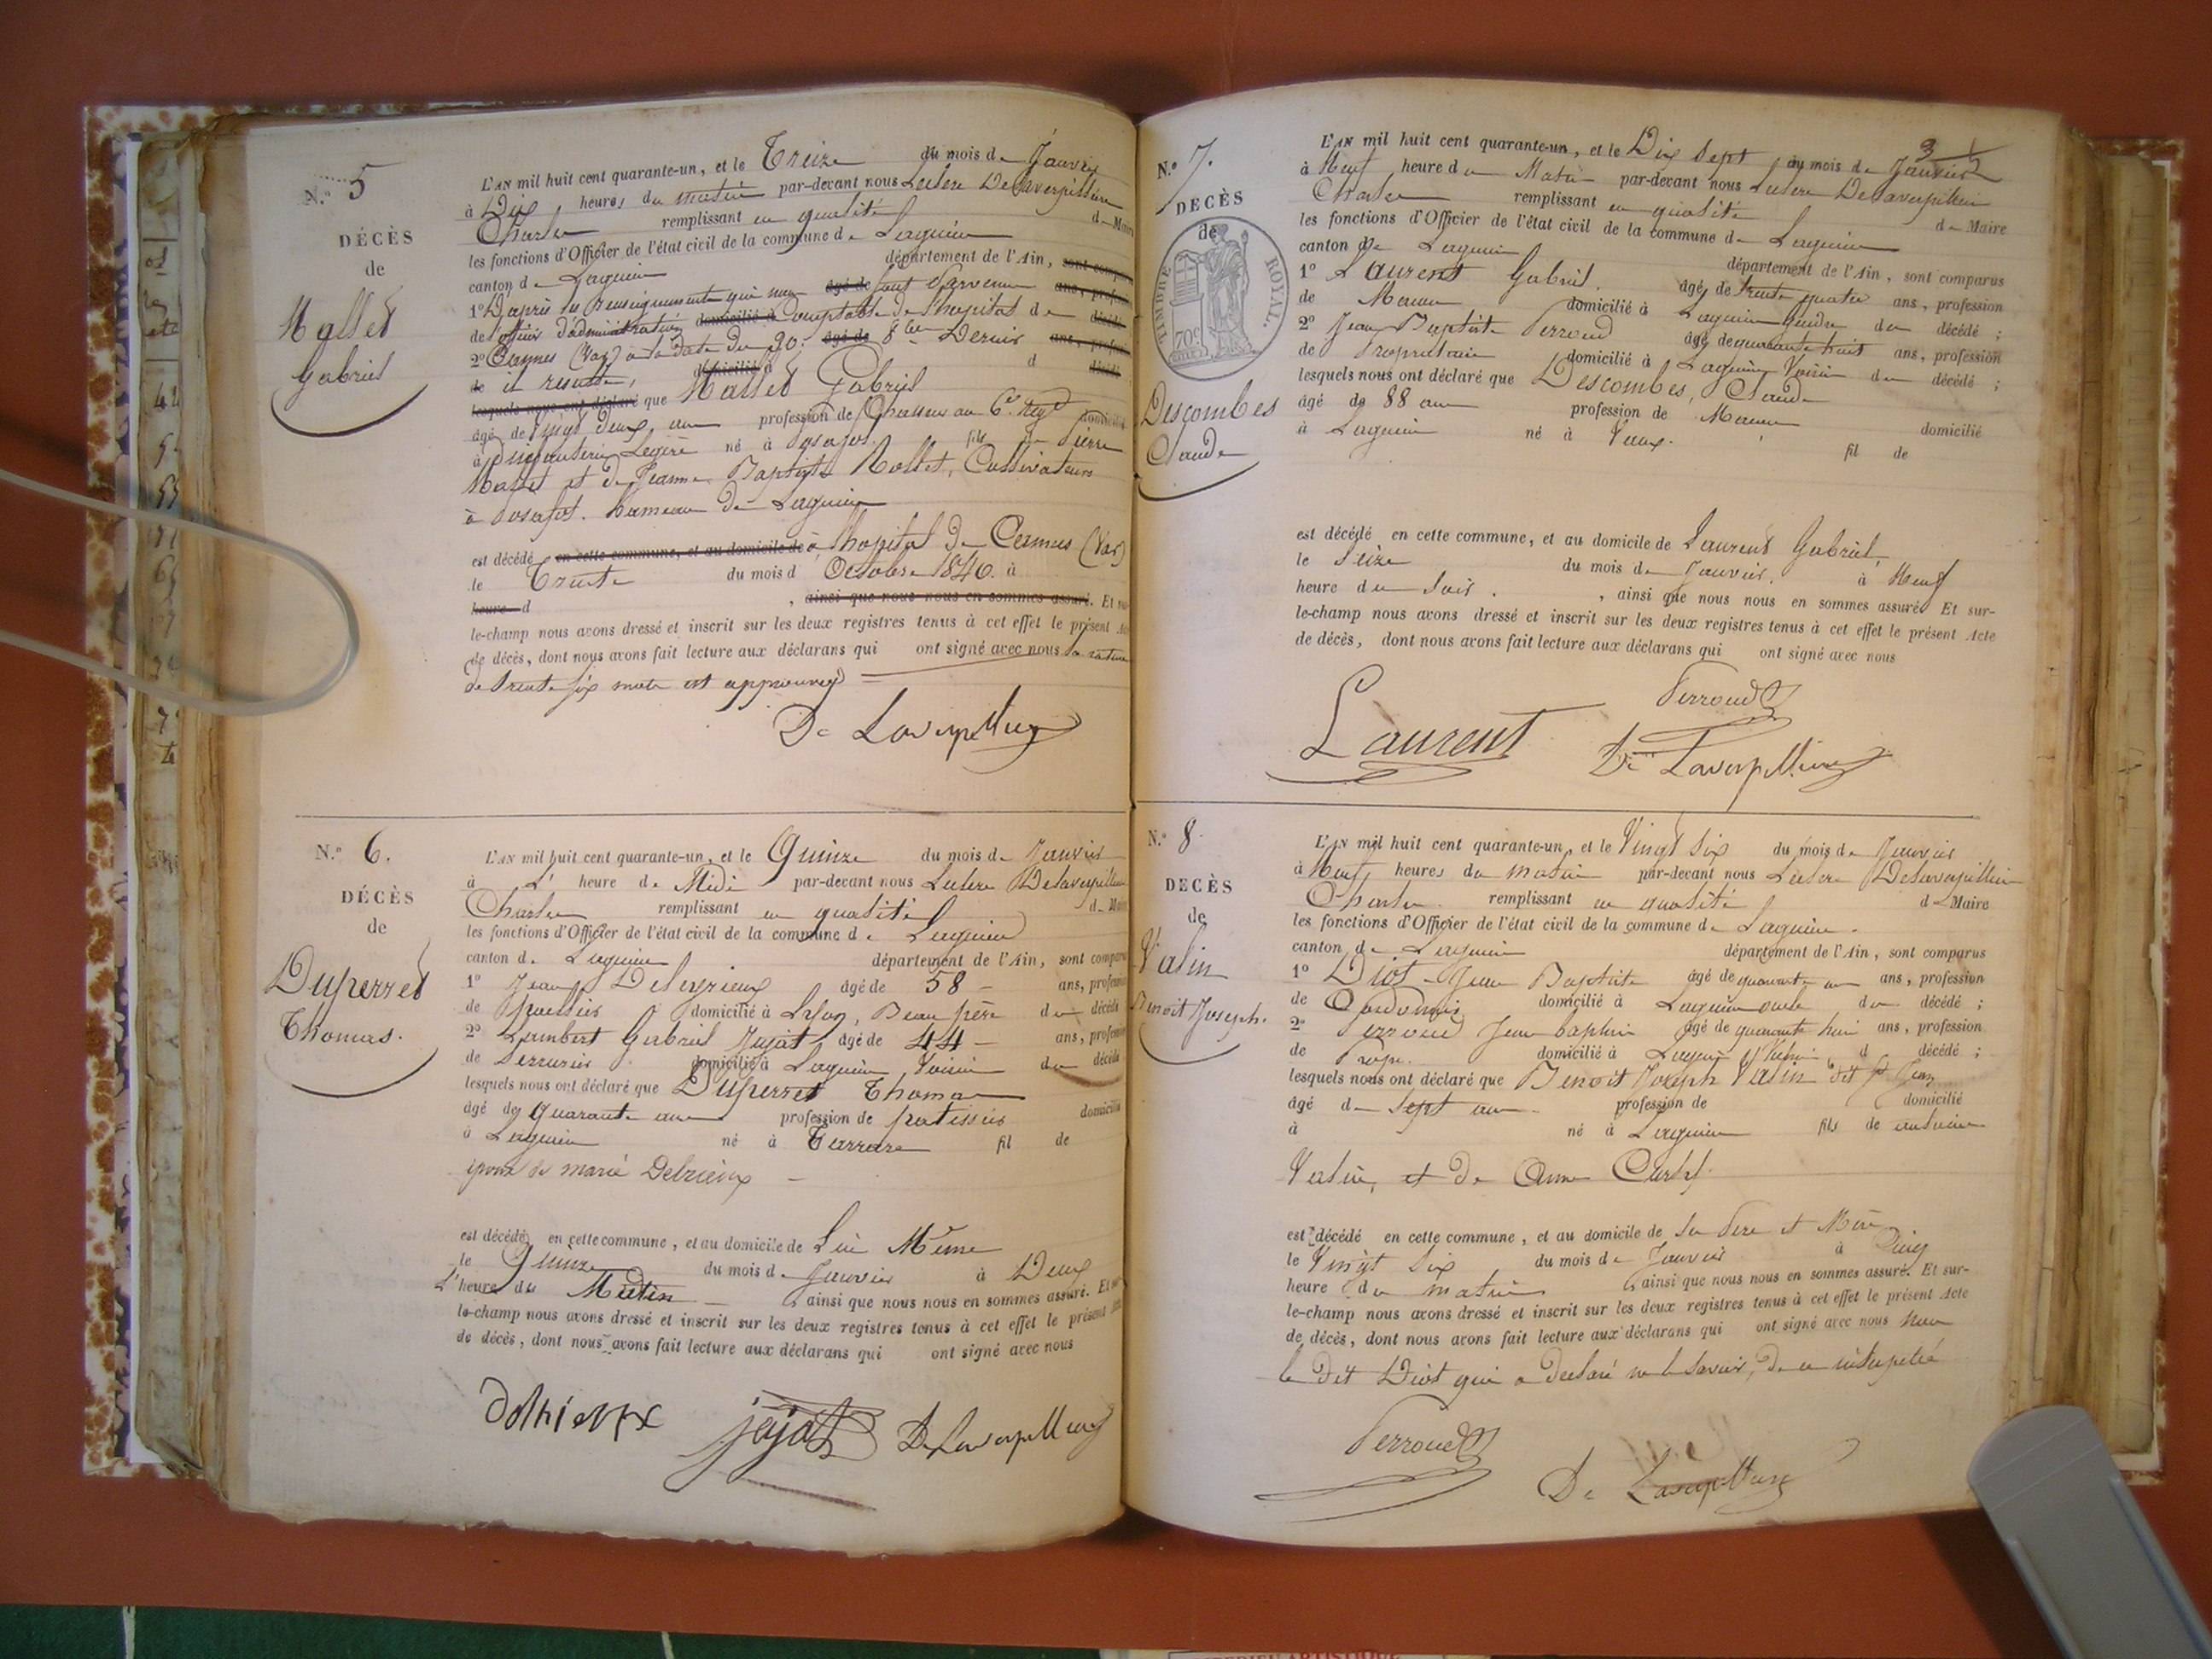 N.° 5
DÉCÈS
de
Mallet
Gabriel
L'AN mil huit cent quarante-un, et le Treize du mois de Janvier
à Dix heures du matin par-devant nous Delaverpillière
Charles remplissant en qualité de Maire
les fonctions d'Officier de l'état civil de la commune de Lagnieu
canton de Lagnieu département de l'Ain,
1° D'après les Renseignements qui nous sont Parvenus
de l'officier d'administration comptable de l'hopital de
2° Cannes (Var) à la date du 90: 8bre Dernier
il resulte, que Mallet Gabriel
âgé de vingt deux ans profession de Chasseur au 6e Regt
à Infanterie Legère né à Posafol fils de Pierre
Mallet et de Jeanne Baptiste Rollet, Cultivateurs
à Posafol. hameau de Lagnieu
est décédé à l'hopital de Cannes (Var)
le Trente du mois d Octobre 1840. à
heure d , ainsi que nous nous en sommes assuré. Et sur-
le-champ nous avons dressé et inscrit sur les deux registres tenus à cet effet le présent Acte
de décès, dont nous avons fait lecture aux déclarans qui ont signé avec nous la rature
de trente six mots est approuvée
De Laverpillière
N.° 6.
DÉCÈS
de
Duperret
Thomas.
L'AN mil huit cent quarante-un, et le Quinze du mois de Janvier
à L' heure de Midi par-devant nous Delaverpillière
Charles remplissant en qualité de Maire
les fonctions d'Officier de l'état civil de la commune de Lagnieu
canton de Lagnieu département de l'Ain, sont comparus
1° Jean âgé de 58 - ans, profession
de domicilié à Lyon, Beau père du décédé
2° Lambert Gabriel Jujat âgé de 44 - ans, profession
de Serrurier domicilié à Lagnieu Voisin du décédé
lesquels nous ont déclaré que Duperret Thomas
âgé de quarante ans profession de patissier domicilié
à Lagnieu né à Tarrare fil de
époux de marie Delrieux -
est décédé en cette commune, et au domicile de Lui Même
le Quinze du mois de Janvier à Deux
L'heure du Matin - , ainsi que nous nous en sommes assuré. Et sur-
le-champ nous avons dressé et inscrit sur les deux registres tenus à cet effet le présent Acte
de décès, dont nous avons fait lecture aux déclarans qui ont signé avec nous
jajat De Laverpillière
3
N.° 7.
DECÈS
de
TIMBRE ROYAL.
70c
Descombes
Claude
L'AN mil huit cent quarante-un, et le Dix Sept du mois de Janvier
à Neuf heure du Matin par-devant nous Delaverpillière
Charles remplissant en qualité de Maire
les fonctions d'Officier de l'état civil de la commune de Lagnieu
canton de Lagnieu département de l'Ain, sont comparus
1° Laurent Gabriel. âgé de trente quatre ans, profession
de Macon domicilié à Lagnieu Gendre du décédé ;
2° Jean Baptiste Perroud âgé de quarante huit ans, profession
de Propriétaire domicilié à Lagnieu Voisin du décédé ;
lesquels nous ont déclaré que Descombes, Claude
âgé de 88 ans profession de Macon domicilié
à Lagnieu né à Vaux. fil de
est décédé en cette commune, et au domicile de Laurent Gabriel,
le Seize du mois de Janvier. à Neuf
heure du Soir. , ainsi que nous nous en sommes assuré. Et sur-
le-champ nous avons dressé et inscrit sur les deux registres tenus à cet effet le présent Acte
de décès, dont nous avons fait lecture aux déclarans qui ont signé avec nous
Perroud
Laurent De Laverpillière
N.° 8.
DECÈS
de
Vatin
Benoit Joseph.
L'AN mil huit cent quarante-un, et le Vingt Six du mois de Janvier
à Neuf heures du matin par-devant nous Delaverpillière
Charles remplissant en qualité de Maire
les fonctions d'Officier de l'état civil de la commune de Lagnieu.
canton de Lagnieu département de l'Ain, sont comparus
1° Diot Jean Baptiste âgé de quarante un ans, profession
de Cordonnier domicilié à Lagnieu oncle du décédé ;
2° Perroud Jean baptiste âgé de quarante huit ans, profession
de Propr. domicilié à Lagnieu Voisin d décédé ;
lesquels nous ont déclaré que Benoit Joseph Vatin dit
âgé de Sept ans. profession de domicilié
à né à Lagnieu fils de
Vatin, et de Anne
est décédé en cette commune, et au domicile de Ses Père et Mère
le Vingt Six du mois de Janvier à Cinq
heure du matin , ainsi que nous nous en sommes assuré. Et sur-
le-champ nous avons dressé et inscrit sur les deux registres tenus à cet effet le présent Acte
de décès, dont nous avons fait lecture aux déclarans qui ont signé avec nous
le dit Diot qui a declaré ne le Savoir, de ce
Perroud
De Laverpillière